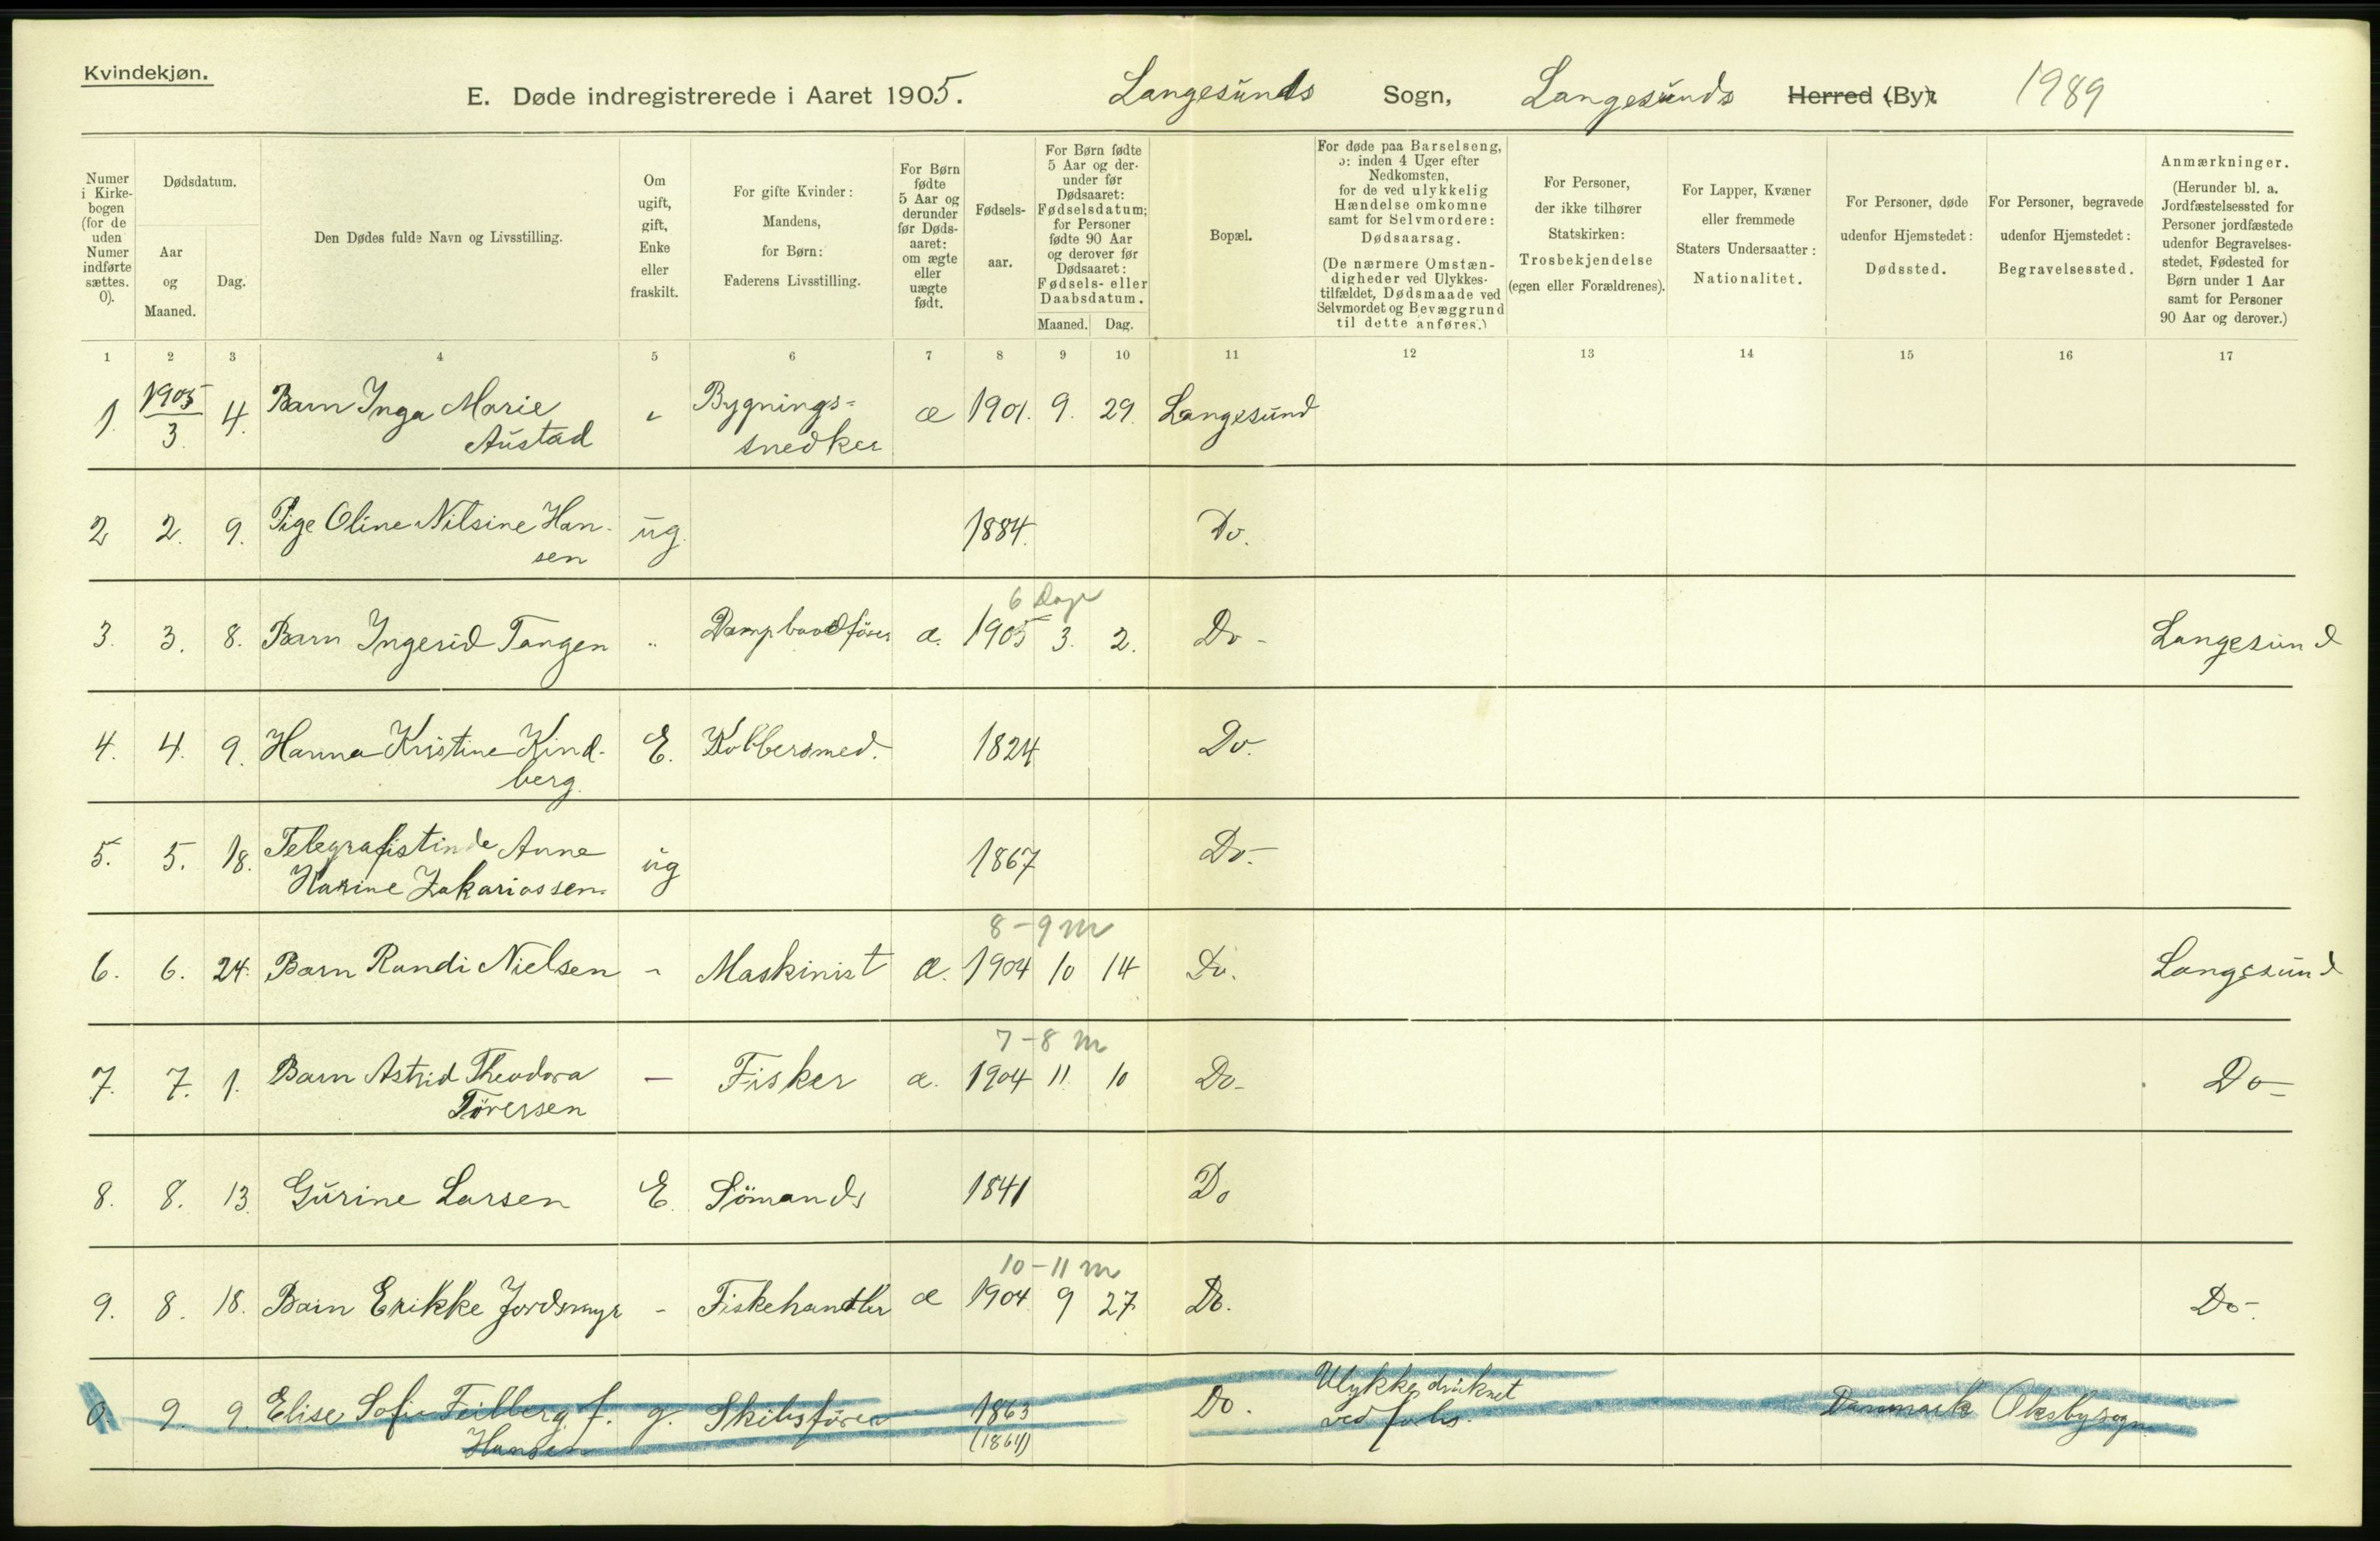 Kvindekjøn.
E. Døde indregistrerede i Aaret 1905. Langesunds Sogn, Langesunds Herred (By). 1989
Numer i Kirke-bogen (for de uden Numer indførte sættes. 0).
Dødsdatum.
Aar og Maaned.
Dag.
Den Dødes fulde Navn og Livsstilling.
Om ugift, gift, Enke eller fraskilt.
For gifte Kvinder: Mandens, for Børn: Faderens Livsstilling.
For Børn fødte 5 Aar og derunder før Døds-aaret: om ægte eller uægte født.
Fødsels-aar.
For Børn fødte 5 Aar og der-under før Dødsaaret: Fødselsdatum; for Personer fødte 90 Aar og derover før Dødsaaret: Fødsels- eller Daabsdatum.
Maaned. Dag.
Bopæl.
For døde paa Barselseng, ɔ: inden 4 Uger efter Nedkomsten, for de ved ulykkelig Hændelse omkomne samt for Selvmordere: Dødsaarsag. (De nærmere Omstæn-digheder ved Ulykkes-tilfældet, Dødsmaade ved Selvmordet og Bevæggrund til dette anføres.)
For Personer, der ikke tilhører Statskirken: Trosbekjendelse (egen eller Forældrenes).
For Lapper, Kvæner eller fremmede Staters Undersaatter: Nationalitet.
For Personer, døde udenfor Hjemstedet: Dødssted.
For Personer, begravede udenfor Hjemstedet: Begravelsessted.
Anmærkninger. (Herunder bl. a. Jordfæstelsessted for Personer jordfæstede udenfor Begravelses-stedet, Fødested for Børn under 1 Aar samt for Personer 90 Aar og derover.)
1 2 3 4 5 6 7 8 9 10 11 12 13 14 15 16 17
1. 1905 3 4. Barn Inga Marie Austad " Bygnings= snedker æ 1901. 9. 29. Langesund
2 2. 9. Pige Oline Nilsine Han-sen ug. 1884. Do.
6 Dage
3. 3. 8. Barn Ingerid Tangen " Dampbaadfører æ. 1905 3. 2. Do - Langesund
4. 4. 9. Hanna Kristine Kind-berg. E. Kobbersmed. 1824 Do.
5. 5. 18. Telegrafistinde Anne Karine Zakariassen. ug 1867 Do.-
8-9 m
6. 6. 24. Barn Randi Nielsen - Maskinist æ. 1904 10 14 Do. Langesund
7-8 m
7. 7. 1. Barn Astrid Theodora Töressen - Fisker æ. 1904 11. 10 Do- Do-
8. 8. 13. Gurine Larsen E. Sömands 1841 Do
10-11 m
9. 8. 18. Barn Erikke Jordsmyr - Fiskehandler æ 1904 9 27 Do. Do-
0. 9. 9. Elise Sofie Feilberg f. Hansen g. Skibsfører 1863 (1864) Do. Ulykke druknet ved Danmark Oksby sogn